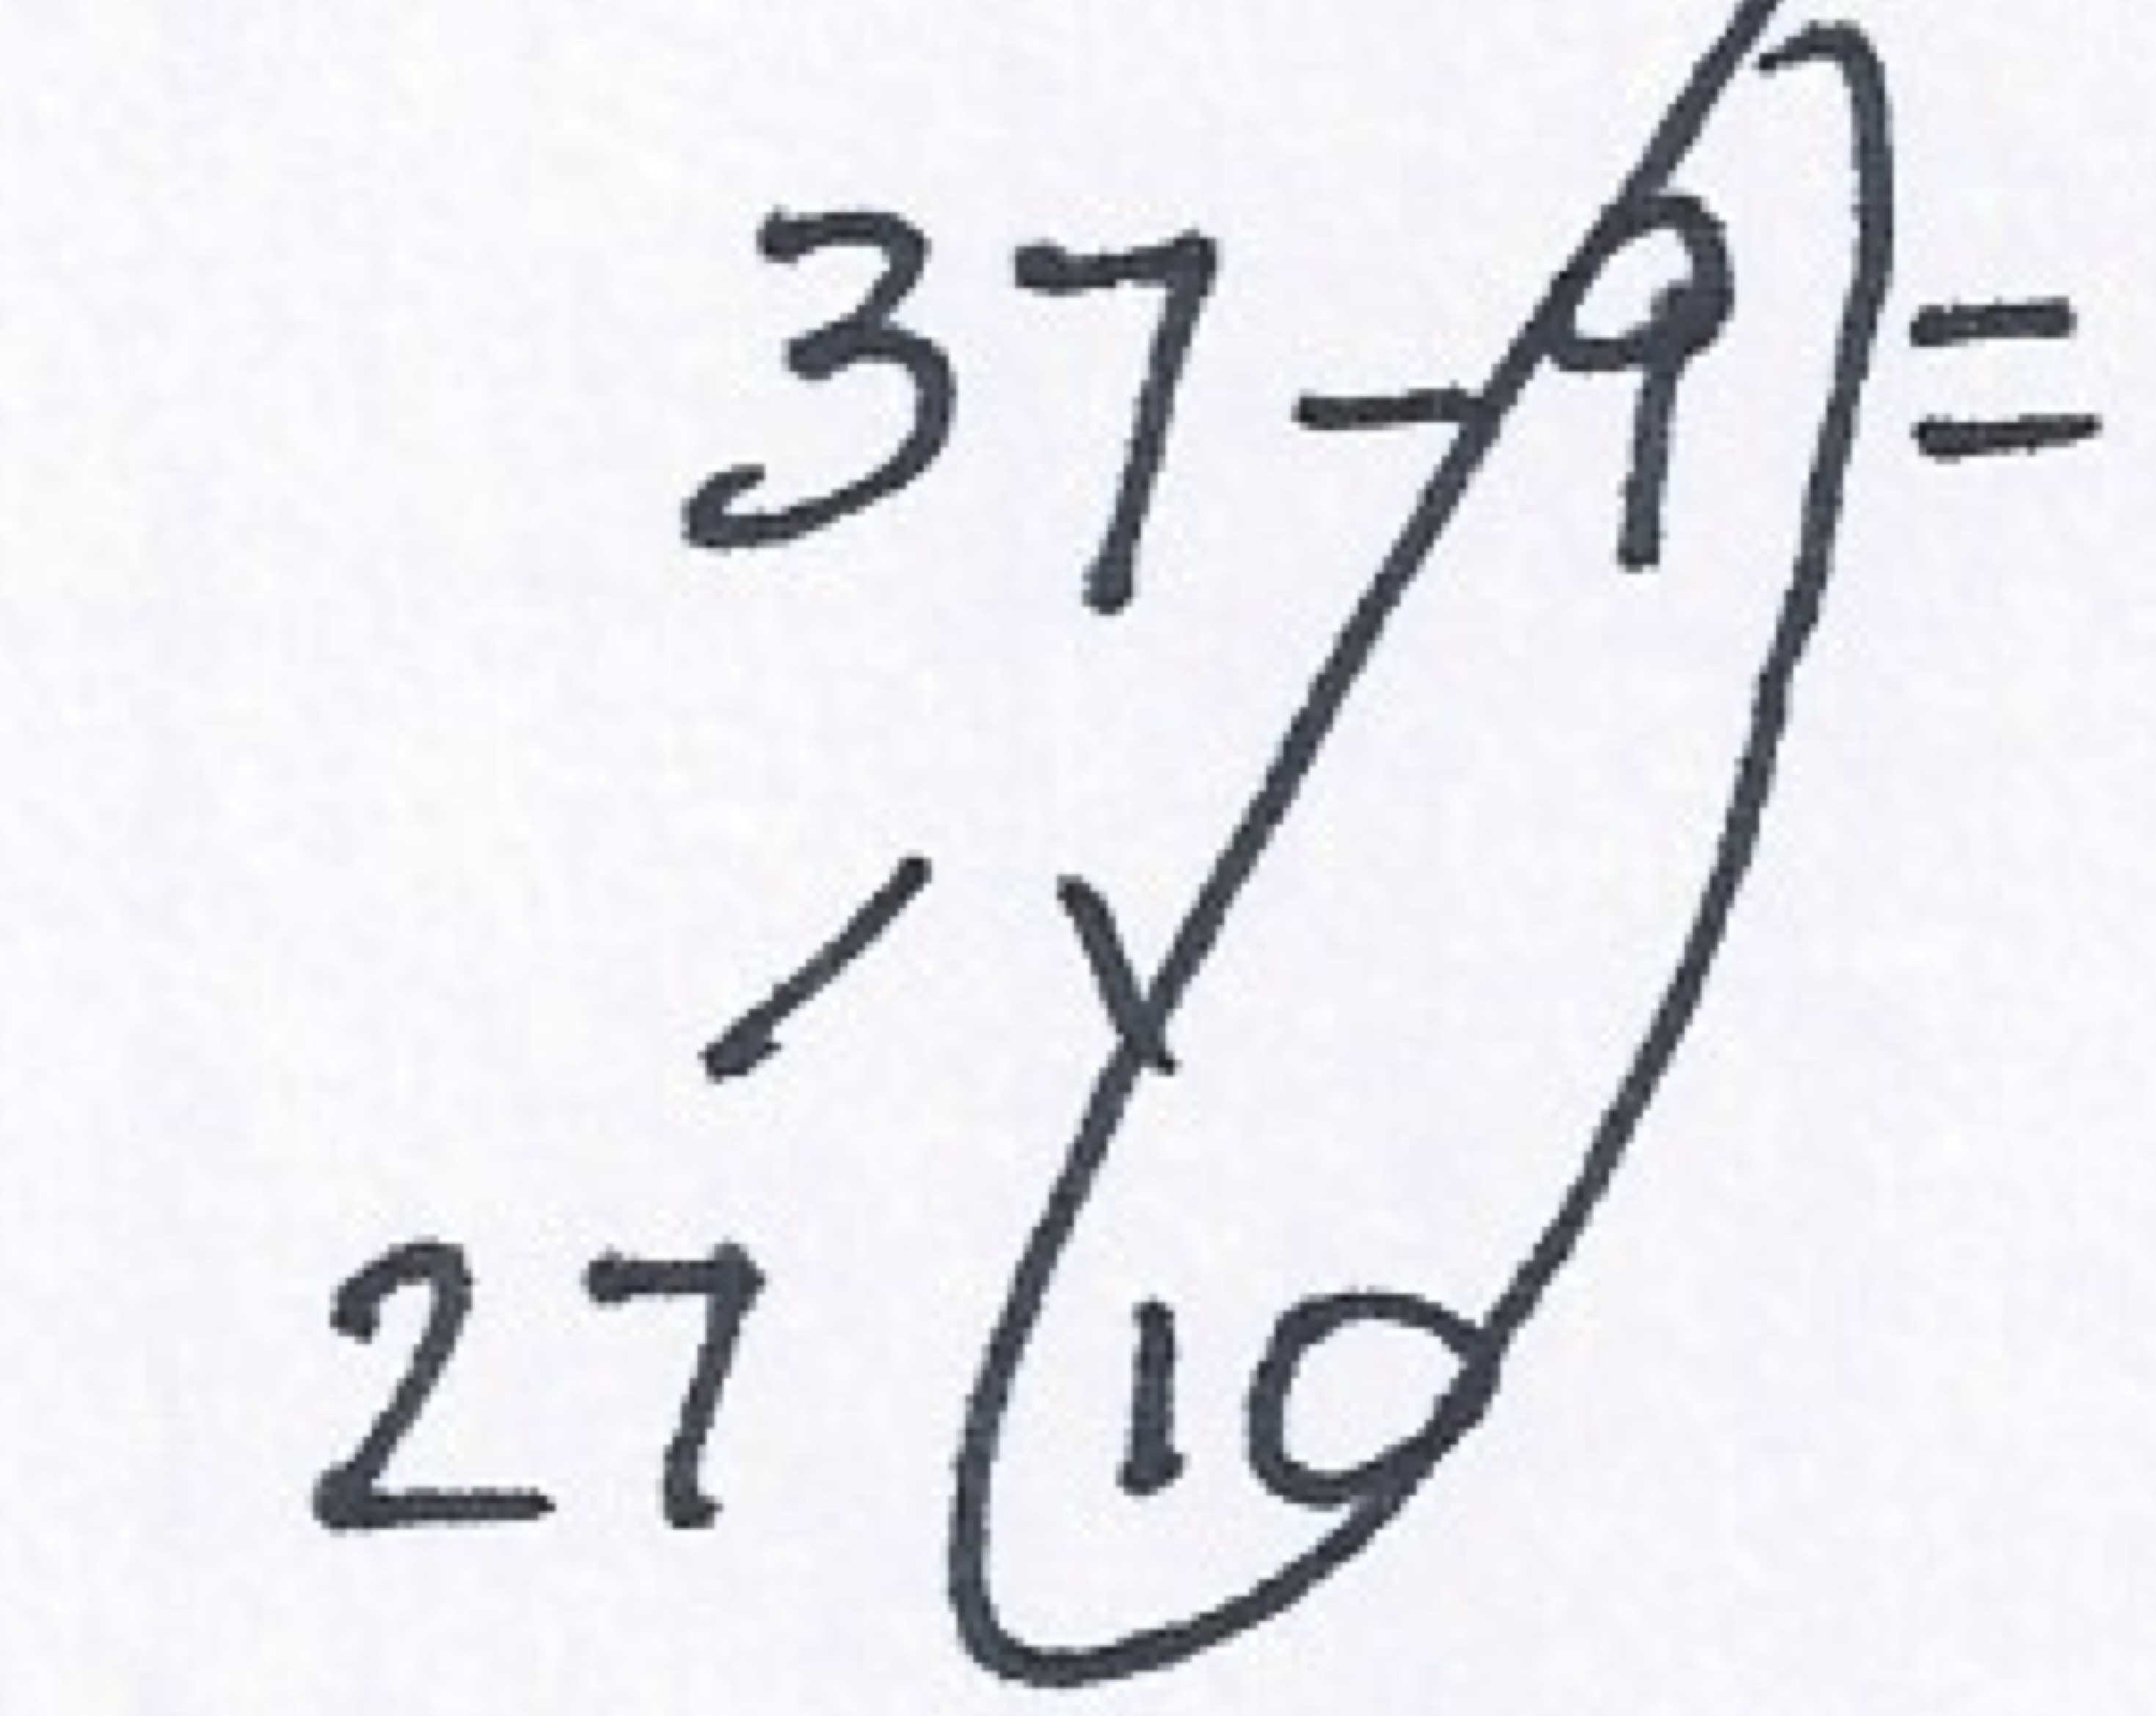 37-9=
27 10